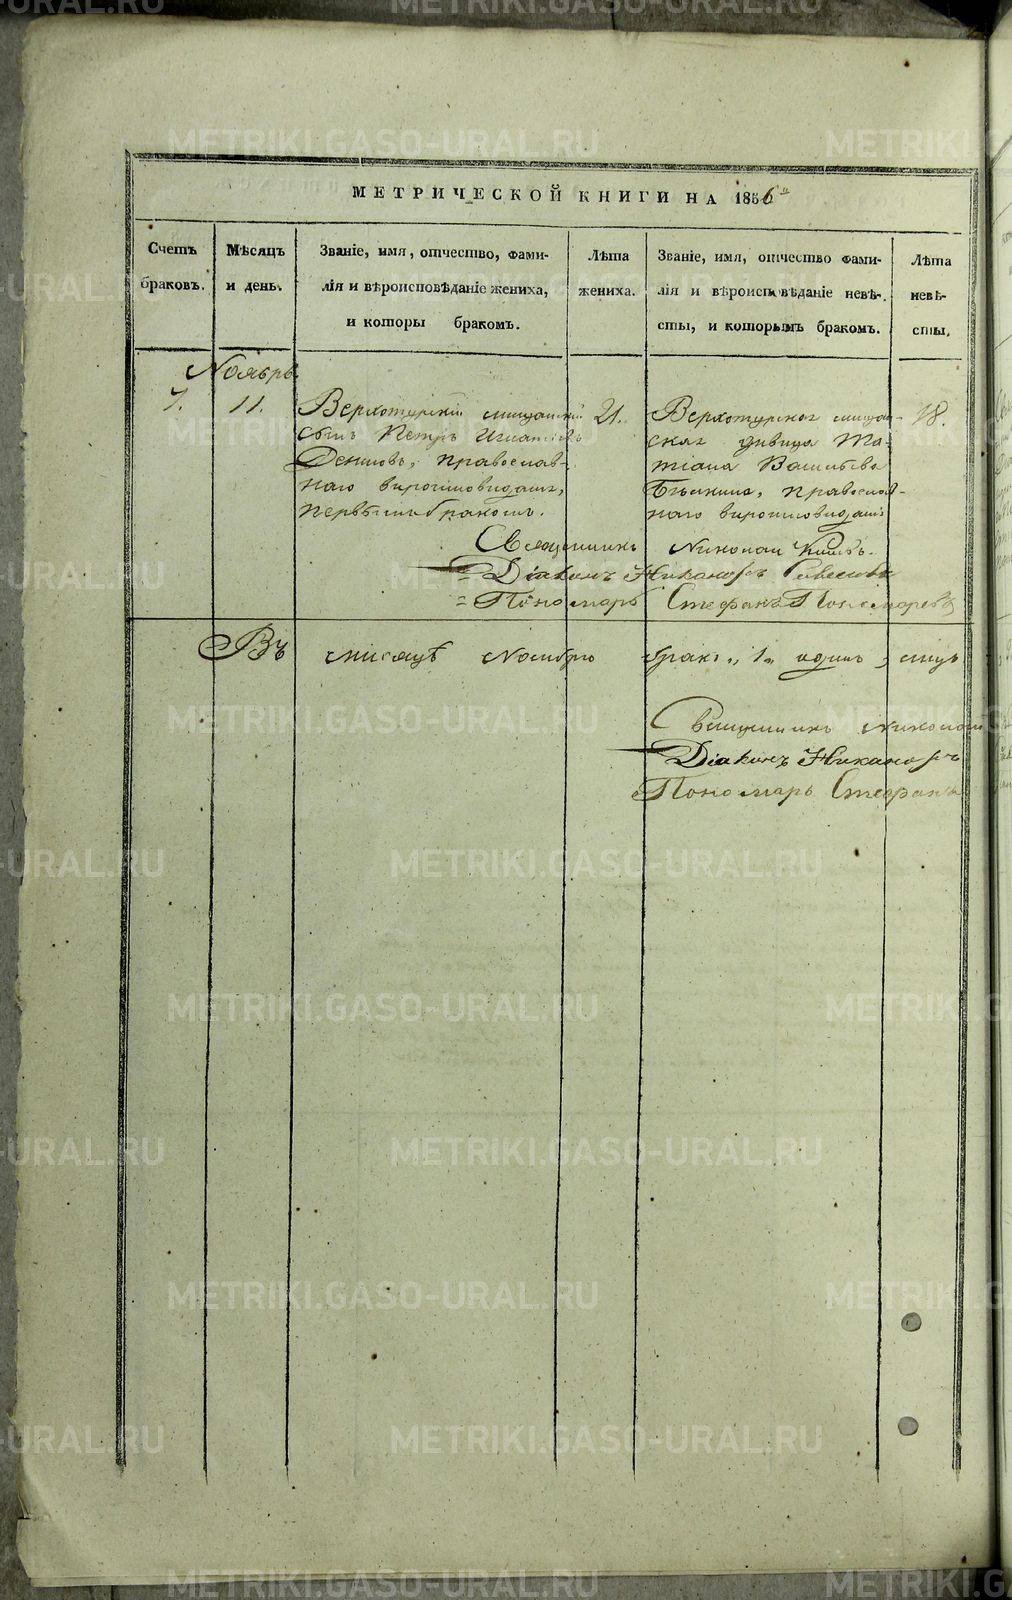 МЕТРИЧЕСКОЙ КНИГИ НА 1856
Счетъ браковъ.
Мѣсяцъ и день.
Званіе, имя, отчество, фами-
лія и вѣроисповѣданіе жениха,
и которы бракомъ.
Лѣта
жениха.
Званіе, имя, отчество фами-
лія и вѣроисповѣданіе невѣ-
сты, и которымъ бракомъ.
Лѣта
невѣ-
сты.
Ноябрь
7.
11.
Верхотурскій мѣщанскій
сынъ Петръ Игнатьевъ
Денисовъ, православ-
наго вѣроисповѣданія,
первымъ бракомъ.
21.
Верхотурская мѣщан-
ская дѣвица Та-
тіана Васильева
православ-
наго вѣроисповѣданія
18.
Священникъ Николай
Діаконъ Никаноръ
Пономарь Стефанъ Пономаревъ
Въ мѣсяцѣ Ноябрѣ бракъ „1„ одинъ,
Священникъ Николай
Діаконъ Никаноръ
Пономарь Стефанъ
METRIKI.GASO-URAL.RU